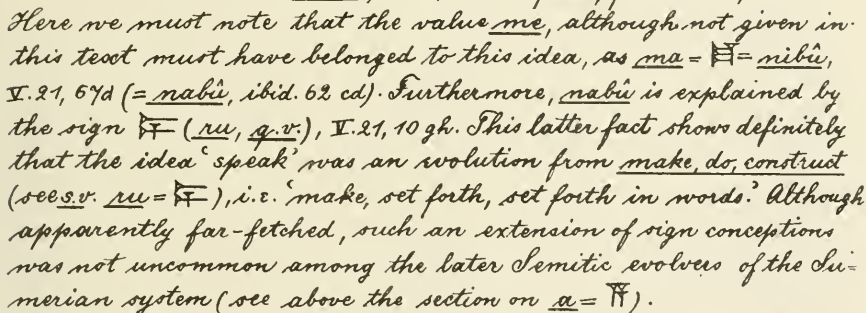 Here we must note that the value me, although not given in
this text must have belonged to this idea, as ma = 𒈠 = nibû,
V. 21, 67d (= nabû, ibid. 62 cd). Furthermore, nabû is explained by
the sign 𒆕 (ru, q.v.), V. 21, 10 gh. This latter fact shows definitely
that the idea ‘speak’ was an evolution from make, do, construct
(see s.v. ru = 𒆕), i.e. ‘make, set forth, set forth in words.’ Although
apparently far-fetched, such an extension of sign conceptions
was not uncommon among the later Semitic evolvers of the Su=
merian system (see above the section on a = 𒀀).